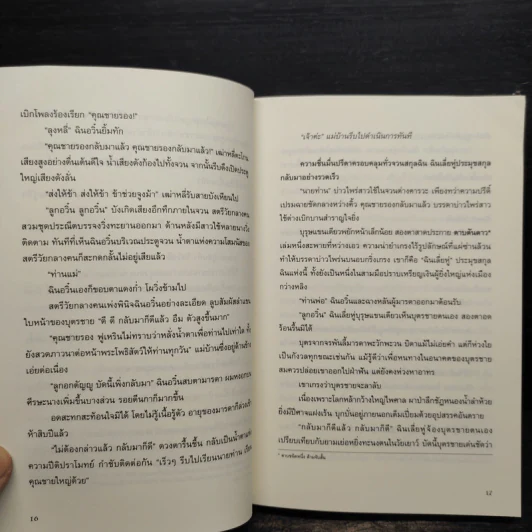 เบิกโพลงร้องเรียก "คุณชายรอง!"
"ลุงหลี่" ฉินอวิ๋นยิ้มทัก
"คุณชายรองกลับมาแล้ว คุณชายรองกลับมาแล้ว!" เฒ่าหลี่ตะโกน
เสียงสูงอย่างตื่นเต้นดีใจ น้ำเสียงดังก้องไปทั้งจวน จากนั้นรีบดึงเปิดประตู
ใหญ่เสียงดังลั่น
"ส่งให้ข้า ส่งให้ข้า ข้าช่วยจูงม้า" เฒ่าหลี่รับสายบังเหียนไป
"ลูกอวิ๋น ลูกอวิ๋น" บังเกิดเสียงอึกทึกภายในจวน สตรีวัยกลางคน
สวมชุดประณีตบรรจงวิ่งทะยานออกมา ด้านหลังมีสาวใช้หลายนางวิ่ง
ติดตาม ทันทีที่เห็นฉินอวิ๋นบริเวณประตูจวน น้ำตาแห่งความโสมนัสของ
สตรีวัยกลางคนก็สะกดกลั้นไม่อยู่เสียแล้ว
"ท่านแม่"
ฉินอวิ๋นเองก็ขอบตาแดงก่ำ โผวิ่งข้ามไป
สตรีวัยกลางคนเพ่งพินิจฉินอวิ๋นอย่างละเอียด ลูบสัมผัสลำแขน
ใบหน้าของบุตรชาย "ดี ดี กลับมาก็ดีแล้ว อืม ตัวสูงขึ้นมาก"
"คุณชายรอง ฟูเหรินไม่ทราบว่าหลั่งน้ำตาเพื่อท่านไปเท่าใด ทั้ง
ยังสวดภาวนาต่อหน้าพระโพธิสัตว์ให้ท่านทุกวัน" แม่บ้านซึ่งอยู่ด้านข้าง
เอ่ยต่อเนื่อง
"ลูกอกตัญญู บัดนี้เพิ่งกลับมา" ฉินอวิ๋นสบตามารดา ผมหงอกบน
ศีรษะนางเพิ่มขึ้นบางส่วน รอยตีนกาก็มากขึ้น
อดสะทกสะท้อนใจมิได้ โดยไม่รู้เนื้อรู้ตัว อายุของมารดาก็ล่วงเข้า
ห้าสิบปีแล้ว
"ไม่ต้องกล่าวแล้ว กลับมาก็ดี" ดวงตารื้นชื้น กลับเป็นน้ำตาแห่ง
ความปีติปราโมทย์ กำชับติดต่อกัน "เร็วๆ รีบไปเรียนนายท่าน
คุณชายใหญ่ด้วย"
16
"เจ้าค่ะ" แม่บ้านรีบไปดำเนินการทันที
ความชื่นมื่นปรีดาครอบคลุมทั่วจวนสกุลฉิน ฉินเลี่ยหู่ประมุขสกุล
กลับมาอย่างรวดเร็ว
"นายท่าน" บ่าวไพร่สาวใช้ในจวนต่างคารวะ เพียงทว่าความปรีดิ์
เปรมฉายชัดกลางหว่างคิ้ว คุณชายรองกลับมาแล้ว บรรดาบ่าวไพร่สาว
ใช้ต่างเบิกบานสำราญใจยิ่ง
บุรุษแขนเดียวพยักหน้าเล็กน้อย สองตาสาดประกาย ดาบตันดาว*
เล่มหนึ่งสะพายที่หว่างเอว ความน่ายำเกรงไร้รูปลักษณ์ที่แผ่ซ่านล้วน
ทำให้บรรดาบ่าวไพร่นบนอบเกริงเกรง เขาก็คือ "ฉินเลี่ยหู่" ประมุขสกุล
ฉินแห่งนี้ ทั้งยังเป็นหนึ่งในสามมือปราบเหรียญเงินผู้ยิ่งใหญ่แห่งเมือง
กว่างหลิง
"ท่านพ่อ" ฉินอวิ๋นและฉางหลันผู้มารดาออกมาต้อนรับ
"ลูกอวิ๋น" ฉินเลี่ยหู่บุรุษแขนเดียวเห็นบุตรชายตนเอง สองตาอด
ร้อนชื้นมิได้
บุตรจากจรพันลี้มารดาพะวักพะวน บิดาแม้ไม่เอ่ยคำ แต่ก็ห่วงใย
เป็นกังวลทุกขณะเช่นกัน แม้รู้ดีว่าเพื่อหนทางในอนาคตของบุตรชาย
สมควรปล่อยเขาออกไปฝ่าฟัน แต่ยังคงห่วงหาอาทร
เขาเกรงว่าบุตรชายจะลาลับ
เนื่องเพราะโลกหล้ากว้างใหญ่ไพศาล มาปาลึกชัฏหนองน้ำลำห้วย
ยิ่งมีปีศาจแฝงเร้น บุกบั่นอยู่ภายนอกเต็มเปี่ยมด้วยอุปสรรคอันตราย
"กลับมาก็ดีแล้ว กลับมาก็ดีแล้ว" ฉินเลี่ยหู่จ้องบุตรชายตนเอง
เปรียบเทียบกับยามเย่อหยิ่งทะนงตนในวัยเยาว์ บัดนี้บุตรชายเด่นชัดว่า
12